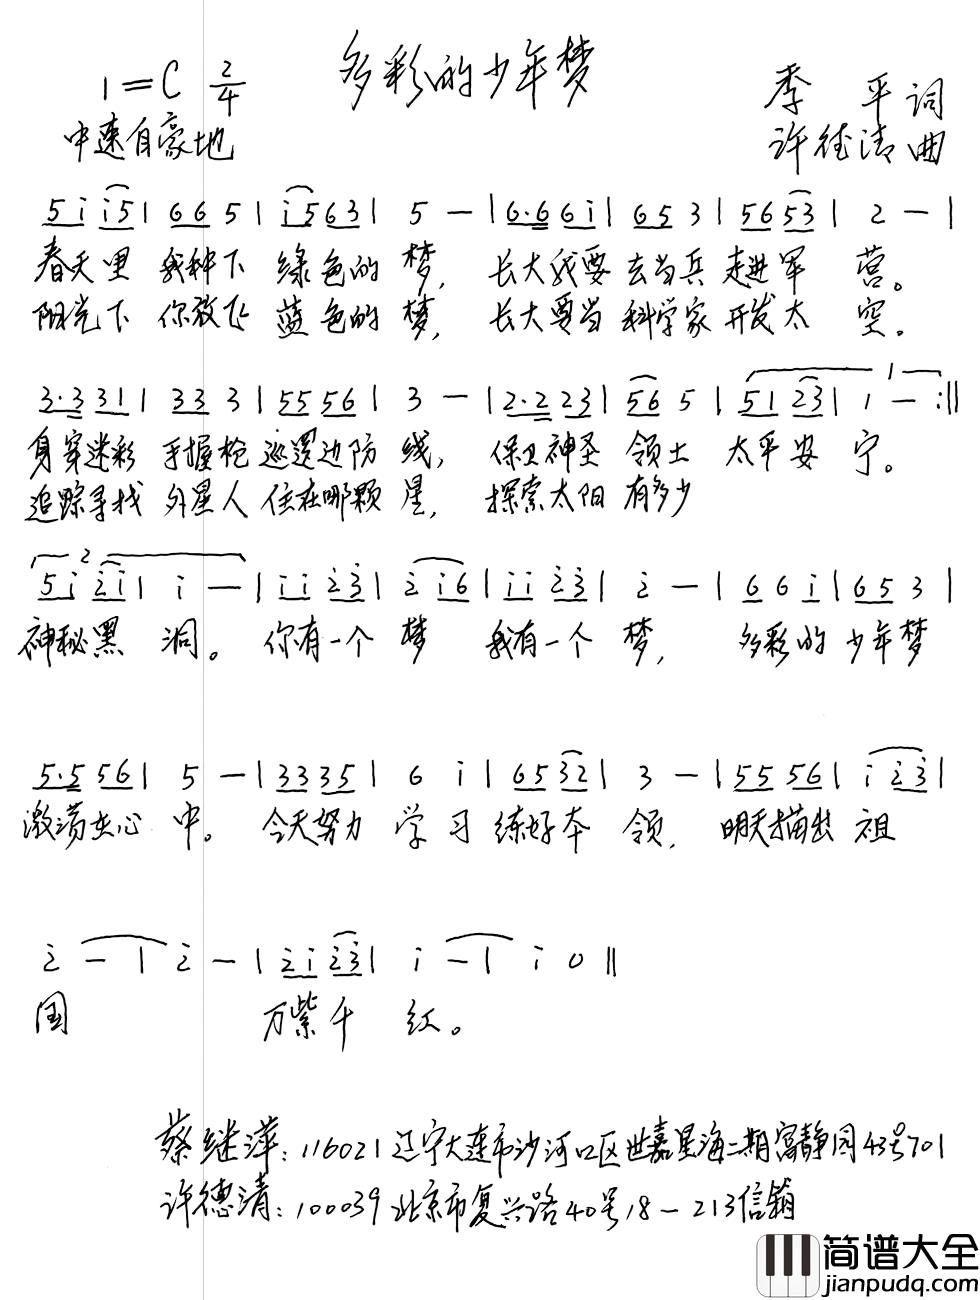 多彩的少年梦
1=C 2/4
季 平 词
中速自豪地
许德清 曲
5 i i5 | 66 5 | i563 | 5 — | 6·66i | 65 3 | 5653 | 2 — |
春天里 我种下 绿色的 梦, 长大我要 去当兵 走进军 营。
阳光下 你放飞 蓝色的 梦, 长大要当 科学家 开发太 空。
3·331 | 33 3 | 5556 | 3 — | 2·223 | 56 5 | 5123 | 1 — :||
身穿迷彩 手握枪 巡逻边防 线, 保卫神圣 领土 太平安 宁。
追踪寻找 外星人 住在哪颗 星, 探索太阳 有多少
5i 2i | i — | ii 23 | 2 i6 | ii 23 | 2 — | 6 6 i | 65 3 |
神秘黑 洞。 你有一个 梦 我有一个 梦, 多彩的 少年梦
5·5 56 | 5 — | 3335 | 6 i | 6532 | 3 — | 5556 | i 23 |
激荡在心 中。 今天努力 学习 练好本 领, 明天描出 祖
2 — | 2 — | 2i 23 | i — | i 0 ||
国 万紫千 红。
蔡继萍: 116021 辽宁大连市沙河口区世嘉星海二期富静园43号701
许德清: 100039 北京市复兴路40号18—213信箱
简谱大全
jianpudq.com